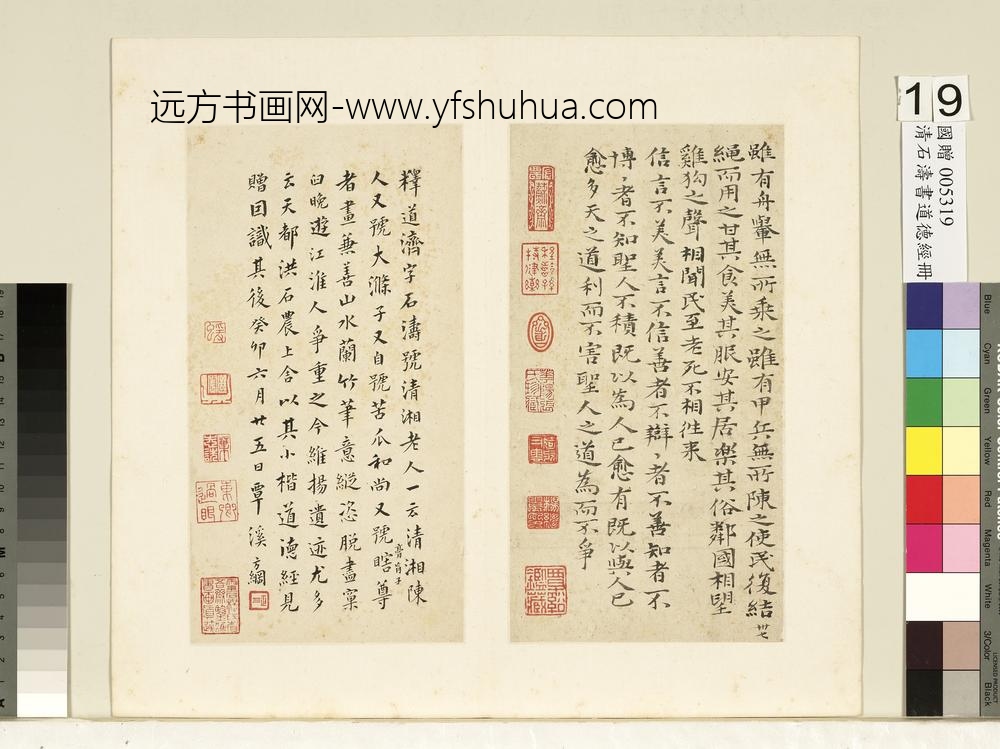 远方书画网-www.yfshuhua.com
雖有舟轝無所乘之雖有甲兵無所陳之使民復結
卅七
繩而用之甘其食美其服安其居樂其俗鄰國相望
雞狗之聲相聞民至老死不相往来
信言不美美言不信善者不辯〻者不善知者不
博〻者不知聖人不積既以為人己愈有既以與人己
愈多天之道利而不害聖人之道為而不爭
釋道濟字石濤號清湘老人一云清湘陳
人又號大滌子又自號苦瓜和尚又號瞎尊
者畫兼善山水蘭竹筆意縱恣脱盡窠
臼晚遊江淮人爭重之今維揚遺迹尤多
云天都洪石農上舍以其小楷道德經見
贈因識其後癸卯六月廿五日覃溪方綱
19
國贈 005319
清石濤書道德經冊
Blue
Cyan
Green
Yellow
Red
Magenta
White
3/Color
Black